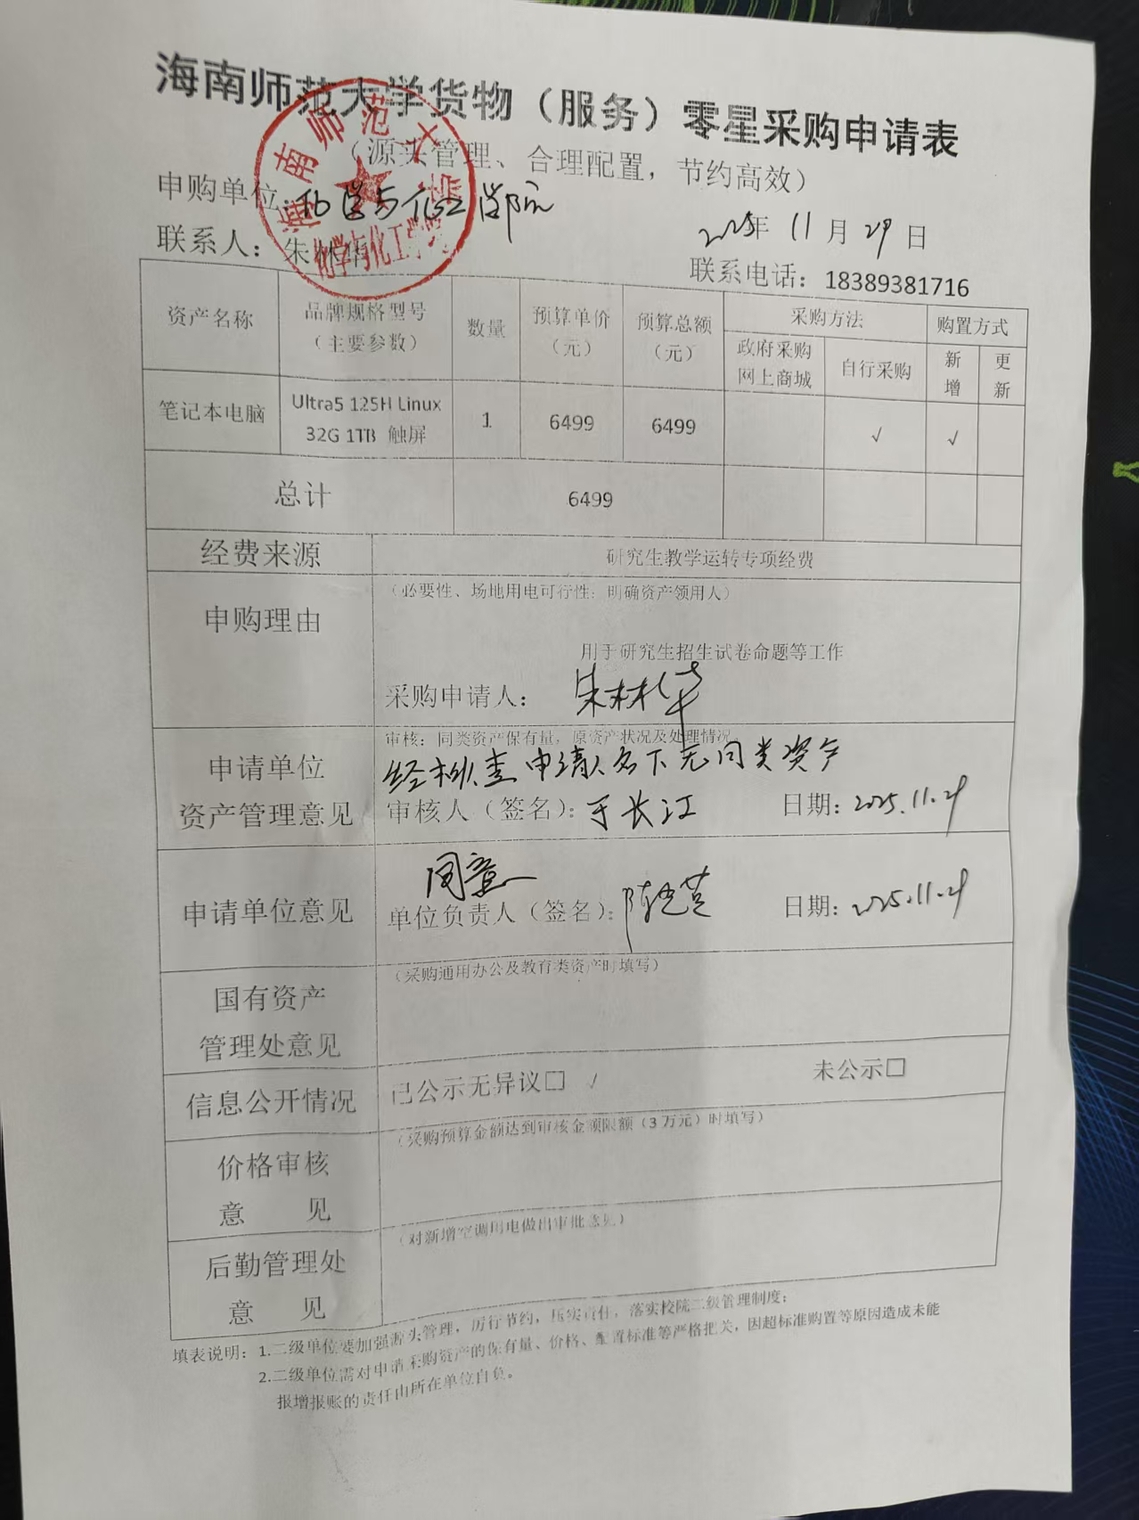 海南师范大学货物（服务）零星采购申请表
（源头管理、合理配置，节约高效）
申购单位：化学与化工学院
2025年 11 月 29 日
联系人：朱林华
联系电话：18389381716
海南师范大学
化学与化工学院
资产名称 品牌规格型号（主要参数） 数量 预算单价（元） 预算总额（元） 采购方法 购置方式
政府采购网上商城 自行采购 新增 更新
笔记本电脑 Ultra5 125H Linux 32G 1TB 触屏 1 6499 6499 √ √
总计 6499
经费来源 研究生教学运转专项经费
申购理由
（必要性、场地用电可行性；明确资产领用人）
用于研究生招生试卷命题等工作
采购申请人：朱林华
申请单位
资产管理意见
审核：同类资产保有量，原资产状况及处理情况。
经核查申请人名下无同类资产
审核人（签名）：于长江 日期：2025.11.29
申请单位意见
同意
单位负责人（签名）： 日期：2025.11.29
国有资产
管理处意见
（采购通用办公及教育类资产时填写）
信息公开情况 已公示无异议□ √ 未公示□
价格审核
意 见
（采购预算金额达到审核金额限额（3 万元）时填写）
后勤管理处
意 见
（对新增空调用电做出审批意见）
填表说明：1.二级单位要加强源头管理，厉行节约，压实责任，落实校院二级管理制度；
2.二级单位需对申请采购资产的保有量、价格、配置标准等严格把关，因超标准购置等原因造成未能
报增报账的责任由所在单位自负。